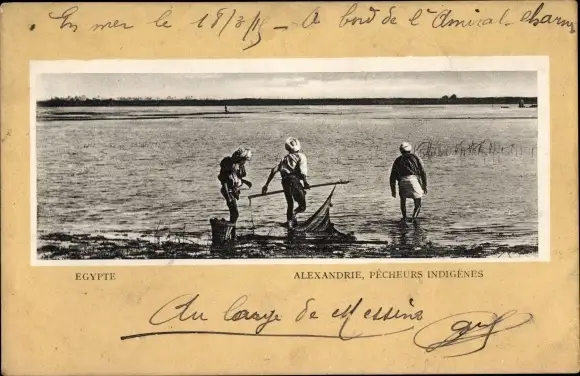 En mer le 18/3/15 - A bord de l'Amiral-Charner
EGYPTE
ALEXANDRIE, PÊCHEURS INDIGÈNES
Au large de Messine